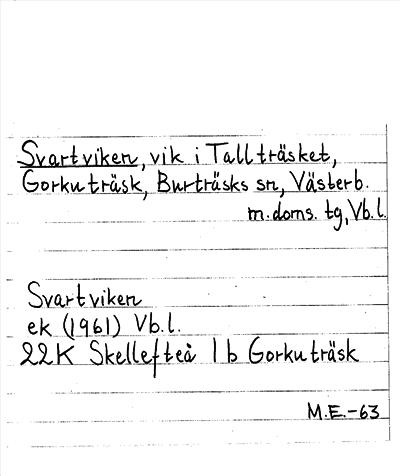 Svartviken, vik i Tallträsket,
Gorkuträsk, Burträsks sn, Västerb.
m. doms. tg, Vb.l.
Svartviken
ek (1961) Vb.l.
22K Skellefteå 1b Gorkuträsk
M.E.-63